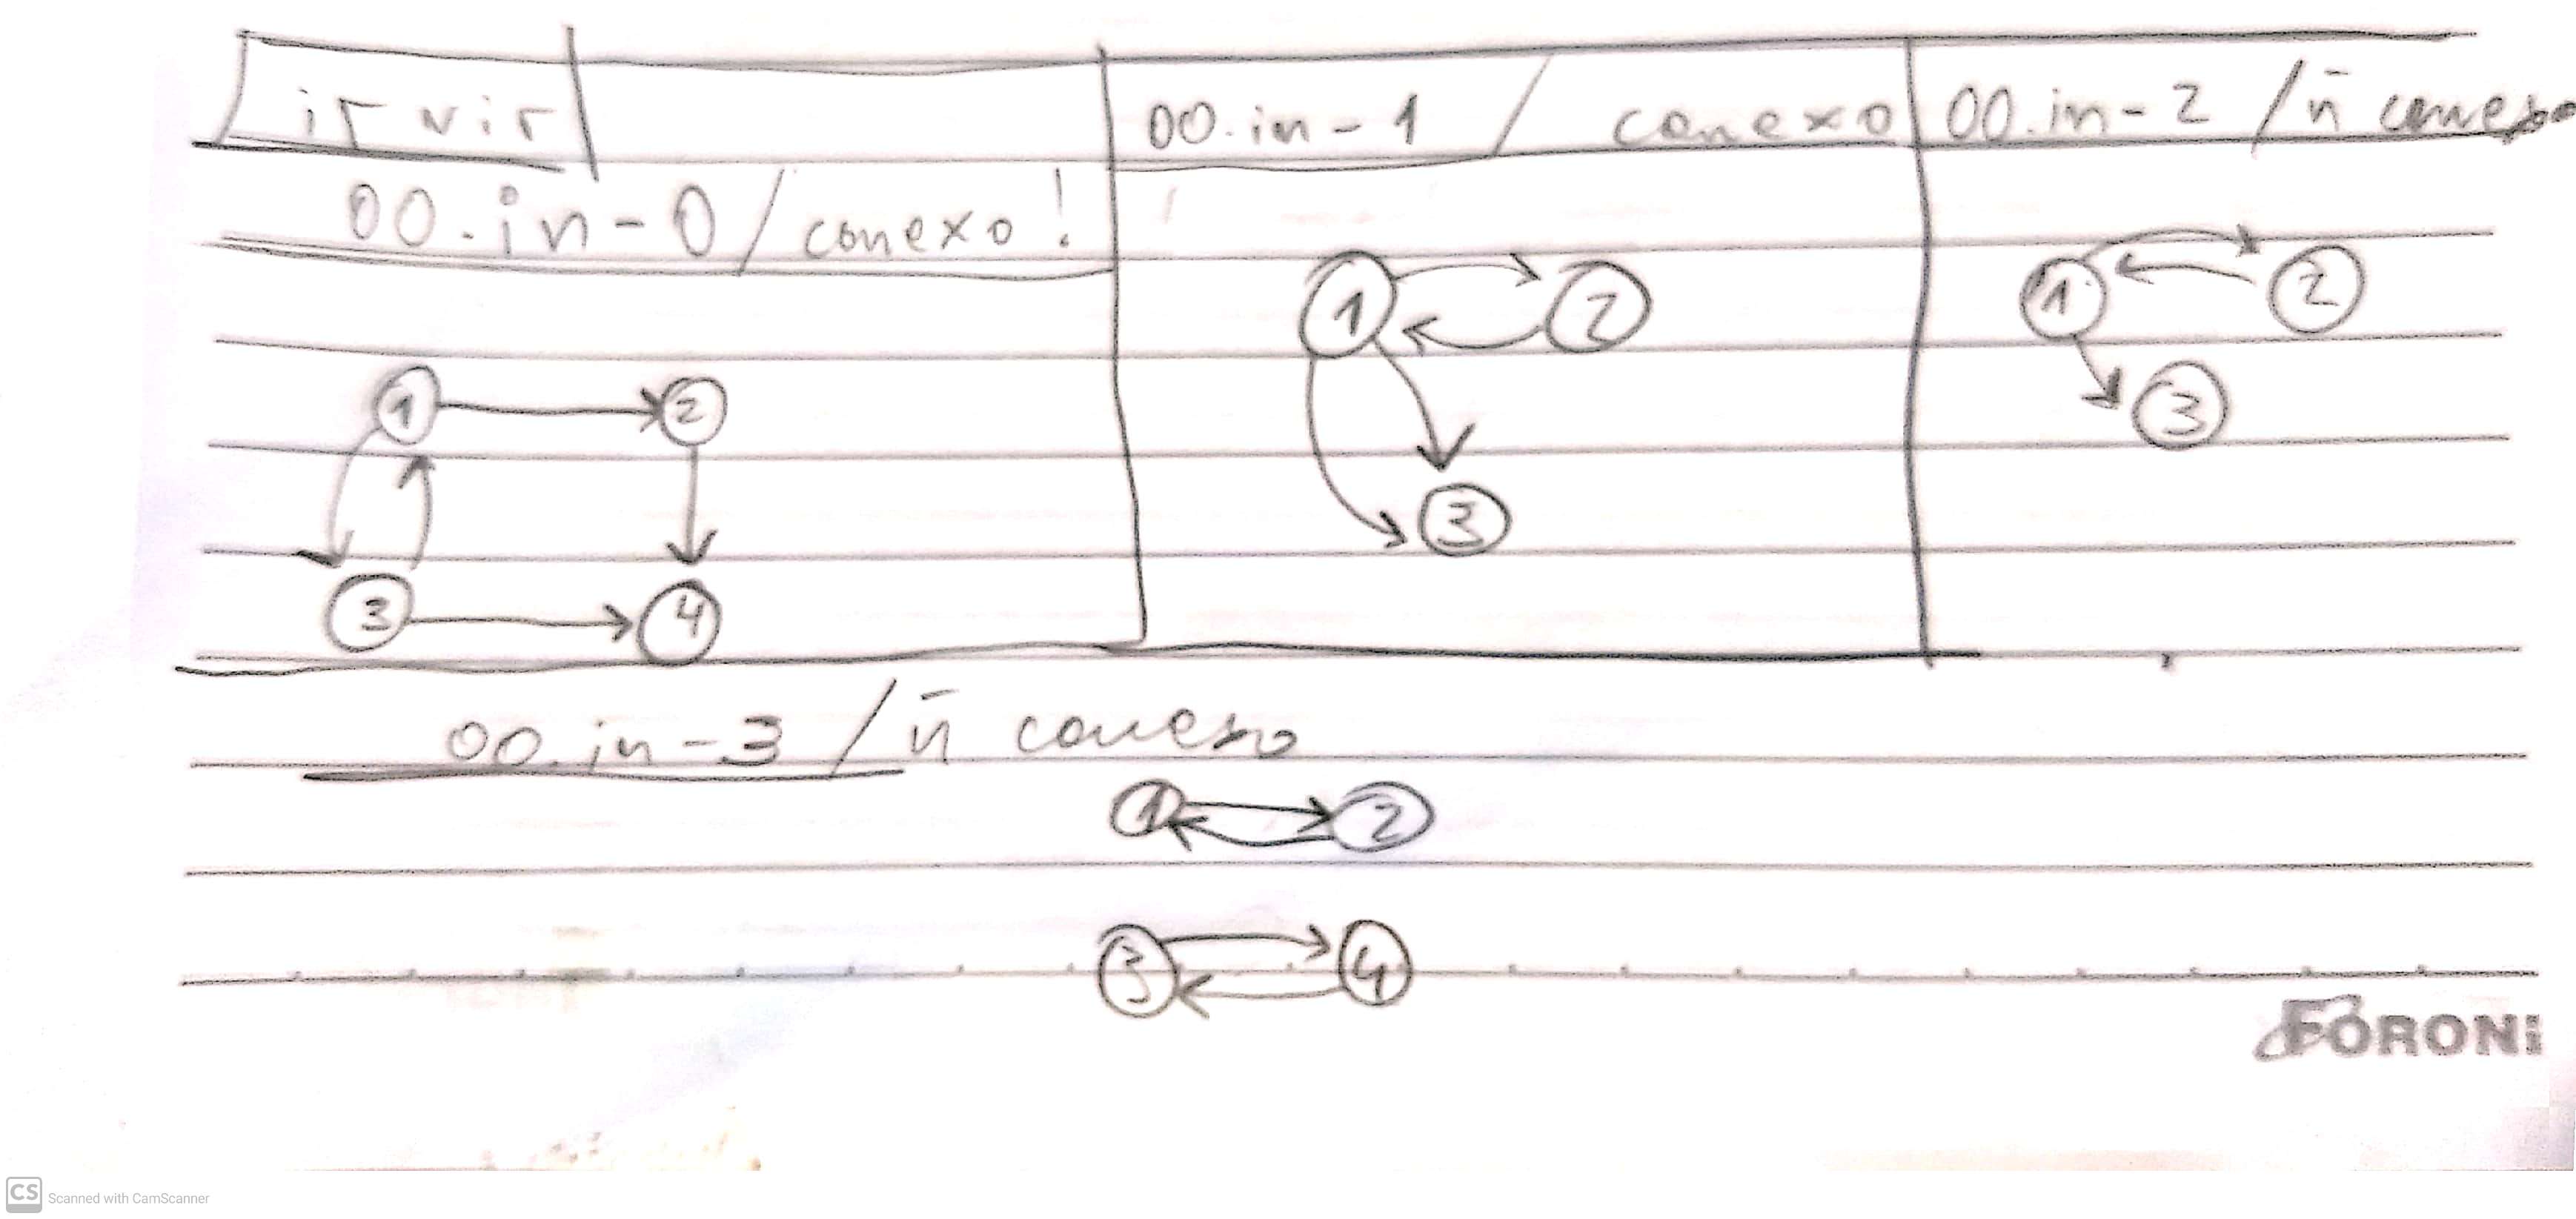 ir vir
00.in-0/conexo!
1 2
3 4
00.in-1 / conexo
1 2
3
00.in-2 /ñ conexo
1 2
3
00.in-3 /ñ conexo
1 2
3 4
FORONI
CS Scanned with CamScanner